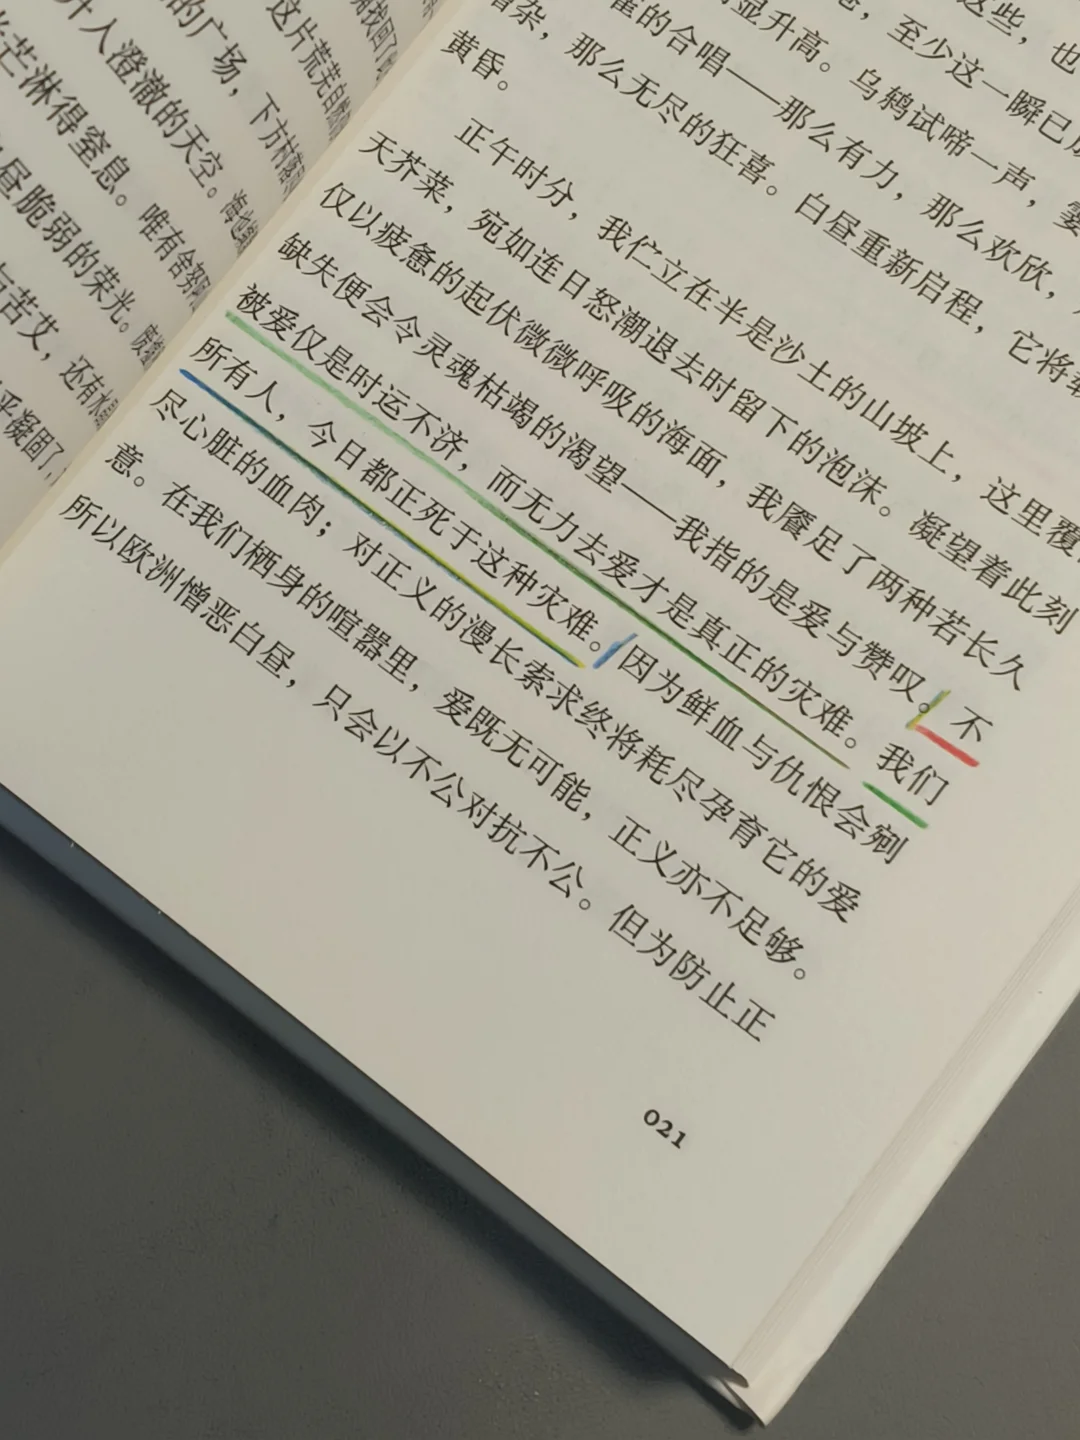 找回了
这片荒芜
的广场，下方村落
人澄澈的天空。海
芒淋得窒息。唯有
昼脆弱的荣光。
苦艾，还有水
乎凝固了，
这些，也
，至少这一瞬已
显升高。乌鸫试啼一声，霎
雀的合唱——那么有力，那么欢欣，
杂，那么无尽的狂喜。白昼重新启程，它将
黄昏。
正午时分，我伫立在半是沙土的山坡上，这里覆
天芥菜，宛如连日怒潮退去时留下的泡沫。凝望着此刻
仅以疲惫的起伏微微呼吸的海面，我餍足了两种若长久
缺失便会令灵魂枯竭的渴望——我指的是爱与赞叹。不
被爱仅是时运不济，而无力去爱才是真正的灾难。我们
所有人，今日都正死于这种灾难。因为鲜血与仇恨会剜
尽心脏的血肉；对正义的漫长索求终将耗尽孕育它的爱
意。在我们栖身的喧嚣里，爱既无可能，正义亦不足够。
所以欧洲憎恶白昼，只会以不公对抗不公。但为防止正
021